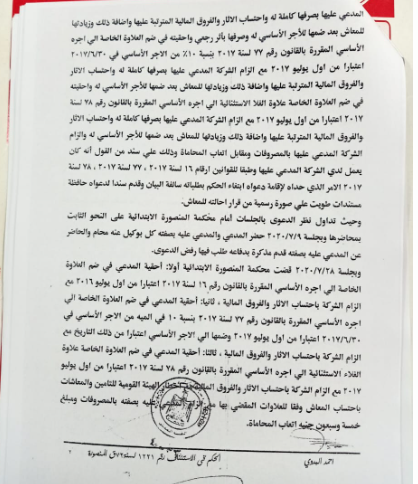 المدعي عليها بصرفها كاملة له واحتساب الاثار والفروق المالية المترتبة عليها واضافة ذلك وزيادتها
للمعاش بعد ضمها للأجر الأساسي له وصرفها بأثر رجعي واحقيته في ضم العلاوة الخاصة الي اجره
الأساسي المقررة بالقانون رقم ٧٧ لسنة ٢٠١٧ بنسبة ١٠٪ من الاجر الأساسي في ٢٠١٧/٦/٣٠
اعتبارا من اول يوليو ٢٠١٧ مع الزام الشركة المدعي عليها بصرفها كاملة له واحتساب الاثار
والفروق المالية المترتبة عليها واضافة ذلك وزيادتها للمعاش بعد ضمها للأجر الأساسي له واحقيته
في ضم العلاوة الخاصة علاوة الغلاء الاستثنائية الي اجره الأساسي المقررة بالقانون رقم ٧٨ لسنة
٢٠١٧ اعتبارا من اول يوليو ٢٠١٧ مع الزام الشركة المدعي عليها بصرفها كاملة له واحتساب الاثار
والفروق المالية المترتبة عليها واضافة ذلك وزيادتها للمعاش بعد ضمها للأجر الأساسي له والزام
الشركة المدعي عليها بالمصروفات ومقابل اتعاب المحاماة وذلك علي سند من القول أنه كان
يعمل لدي الشركة المدعي عليها وطبقا للقوانين ارقام ١٦ لسنة ٢٠١٧ ، ٧٧ لسنة ٢٠١٧ ، ٧٨ لسنة
٢٠١٧ الامر الذي حداه لإقامة دعواه ابتغاء الحكم بطلباته سالفة البيان وقدم سندا لدعواه حافظة
مستندات طويت علي صورة رسمية من قرار احالته للمعاش.
وحيث تداول نظر الدعوى بالجلسات أمام محكمة المنصورة الابتدائية على النحو الثابت
بمحاضرها وبجلسة ٢٠٢٠/٧/٩ حضر المدعي والمدعي عليه بصفته كل بوكيل عنه محام والحاضر
عن المدعي عليه بصفته قدم مذكرة بدفاعه طلب فيها رفض الدعوى.
وبجلسة ٢٠٢٠/٧/٢٨ قضت محكمة المنصورة الابتدائية أولا: أحقية المدعي في ضم العلاوة
الخاصة الي اجره الأساسي المقررة بالقانون رقم ١٦ لسنة ٢٠١٧ اعتبارا من اول يوليو ٢٠١٦ مع
الزام الشركة باحتساب الاثار والفروق المالية ، ثانيا: أحقية المدعي في ضم العلاوة الخاصة الي
اجره الأساسي المقررة بالقانون رقم ٧٧ لسنة ٢٠١٧ بنسبة ١٠ في المية من الاجر الأساسي في
٢٠١٧/٦/٣٠ اعتبارا من اول يوليو ٢٠١٧ وضمها الي الاجر الأساسي اعتبارا من ذلك التاريخ مع
الزام الشركة باحتساب الاثار والفروق المالية ، ثالثا: أحقية المدعي في ضم العلاوة الخاصة علاوة
الغلاء الاستثنائية الي اجره الأساسي المقررة بالقانون رقم ٧٨ لسنة ٢٠١٧ اعتبارا من اول يوليو
٢٠١٧ مع الزام الشركة باحتساب الاثار والفروق المالية الهيئة القومية للتامين والمعاشات
باحتساب المعاش وفقا للعلاوات المقضي بها مع الزام المدعي عليه بصفته بالمصروفات ومبلغ
خمسة وسبعون جنيه اتعاب المحاماة.
احمد البدوي
الحكم في الاستئناف رقم ١٢٢١ لسنة ٧٢ ق المنصورة
٢